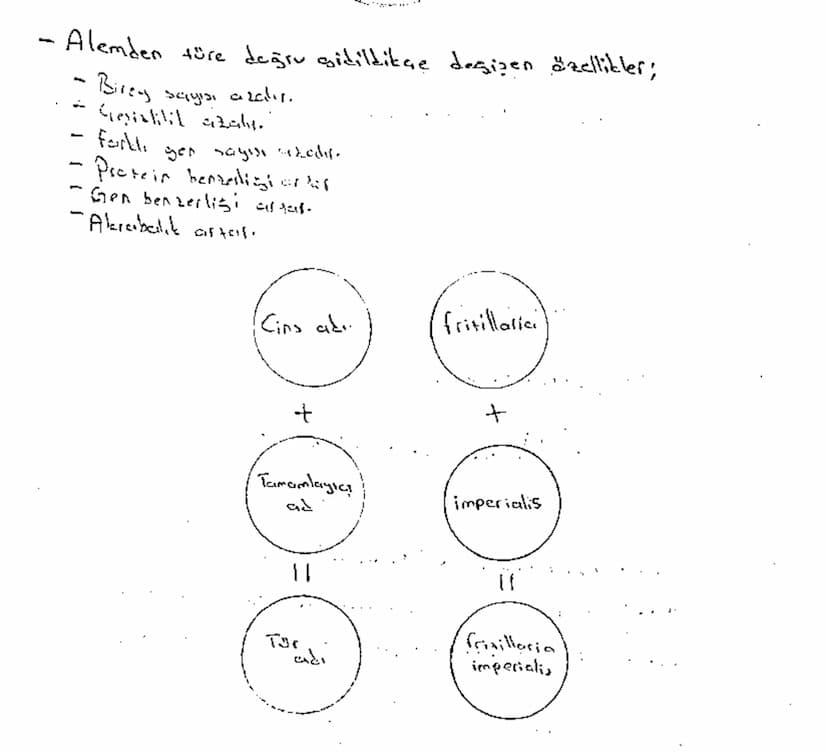 - Alemden türe doğru gidildikçe değişen özellikler;
- Birey sayısı azalır.
- Çeşitlilik azalır.
- Farklı gen sayısı azalır.
- Protein benzerliği artar
- Gen benzerliği artar.
- Akrabalık artar.
Cins adı
fritillaria
+
+
Tamamlayıcı
ad
imperialis
=
=
Tür
adı
fritillaria
imperialis